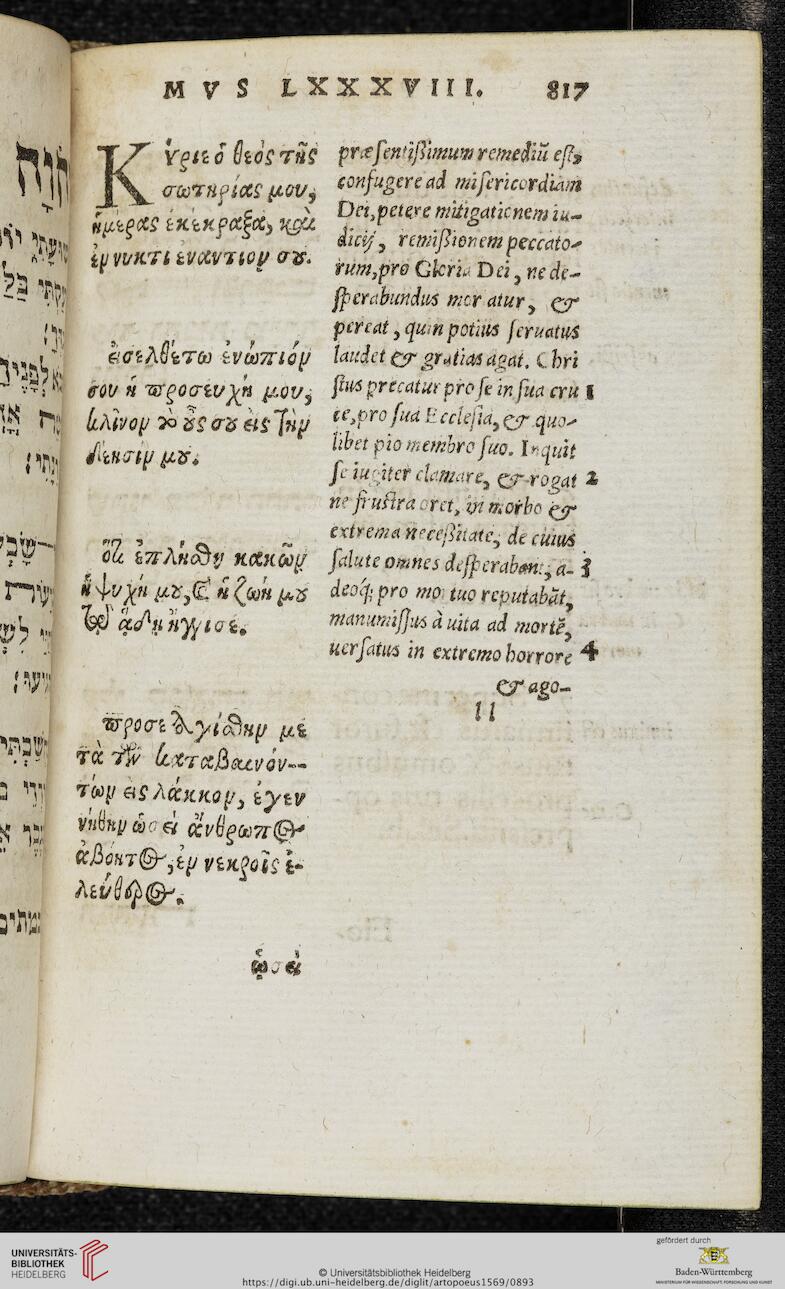 MVS LXXXVIII. 817
Κύριε ὁ θεὸς τῆς
σωτηρίας μου,
ἡμέρας ἐκέκραξα, καὶ
ἐν νυκτὶ ἐναντίον σου.
εἰσελθέτω ἐνώπιόν
σου ἡ προσευχή μου,
κλῖνον τὸ οὖς σου εἰς τὴν
δέησιν μου.
ὅτι ἐπλήσθη κακῶν
ἡ ψυχή μου, καὶ ἡ ζωή μου
τῷ ᾅδῃ ἤγγισε.
προσελογίσθην με
τὰ τῶν καταβαινόν--
των εἰς λάκκον, ἐγεν
νήθην ὡσεὶ ἄνθρωπος
ἀβόητος, ἐν νεκροῖς ἐ-
λεύθερος.
ὡσεὶ
præsentißimum remediũ est,
confugere ad misericordiam
Dei, petere mitigationem iu-
dicij, remißionem peccato-
rum, pro Gloria Dei, ne de-
sperabundus moriatur, &
pereat, quin potius seruatus
laudet & gratias agat. Chri
stus precatur pro se in sua cru 1
ce, pro sua Ecclesia, & quo-
libet pio membro suo. Inquit
se iugiter clamare, & rogat 2
ne frustra oret, in morbo &
extrema neceßitate, de cuius
salute omnes desperabant, a- 3
deoq́; pro mortuo reputabãt,
manumissus à uita ad mortẽ,
uersatus in extremo horrore 4
& ago-
ll
הוָה
UNIVERSITÄTS-
BIBLIOTHEK
HEIDELBERG
© Universitätsbibliothek Heidelberg
https://digi.ub.uni-heidelberg.de/diglit/artopoeus1569/0893
gefördert durch
Baden-Württemberg
MINISTERIUM FÜR WISSENSCHAFT, FORSCHUNG UND KUNST